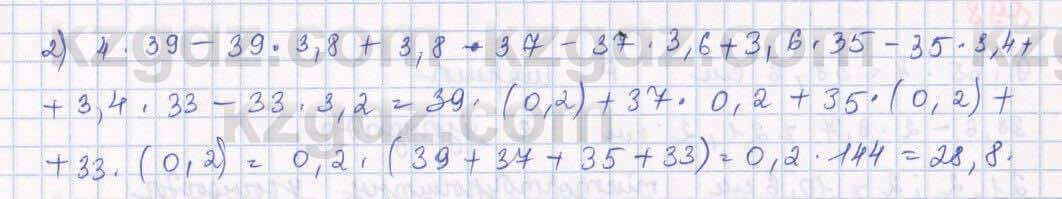 2) 4 · 39 - 39 · 3,8 + 3,8 · 37 - 37 · 3,6 + 3,6 · 35 - 35 · 3,4 +
+ 3,4 · 33 - 33 · 3,2 = 39 · (0,2) + 37 · 0,2 + 35 · (0,2) +
+ 33 · (0,2) = 0,2 · (39 + 37 + 35 + 33) = 0,2 · 144 = 28,8.
kzgdz.com
kzgdz.com